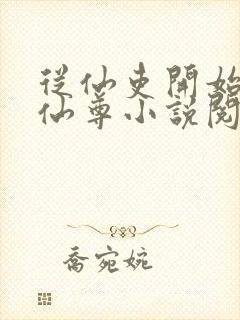 從仙吏開始
仙尊小說閱
喬宛婉